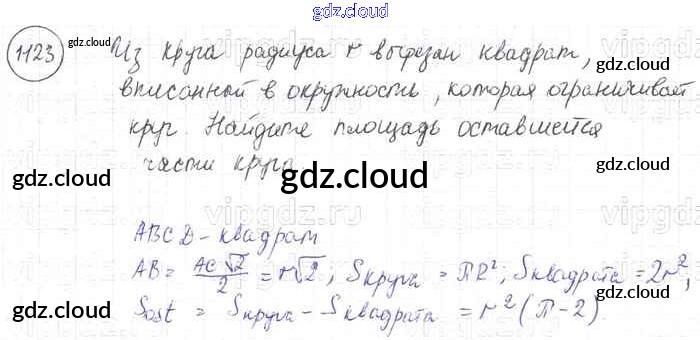 gdz.cloud
1123 Из круга радиуса r вырезан квадрат,
вписанный в окружность, которая ограничивает
круг. Найдите площадь оставшейся
части круга.
gdz.cloud
gdz.cloud
gdz.cloud
gdz.cloud
ABCD - квадрат
AB = AC√2/2 = r√2; Sкруга = πR²; Sквадрата = 2r²;
Sost = Sкруга - Sквадрата = r²(π-2).
gdz.cloud
gdz.cloud